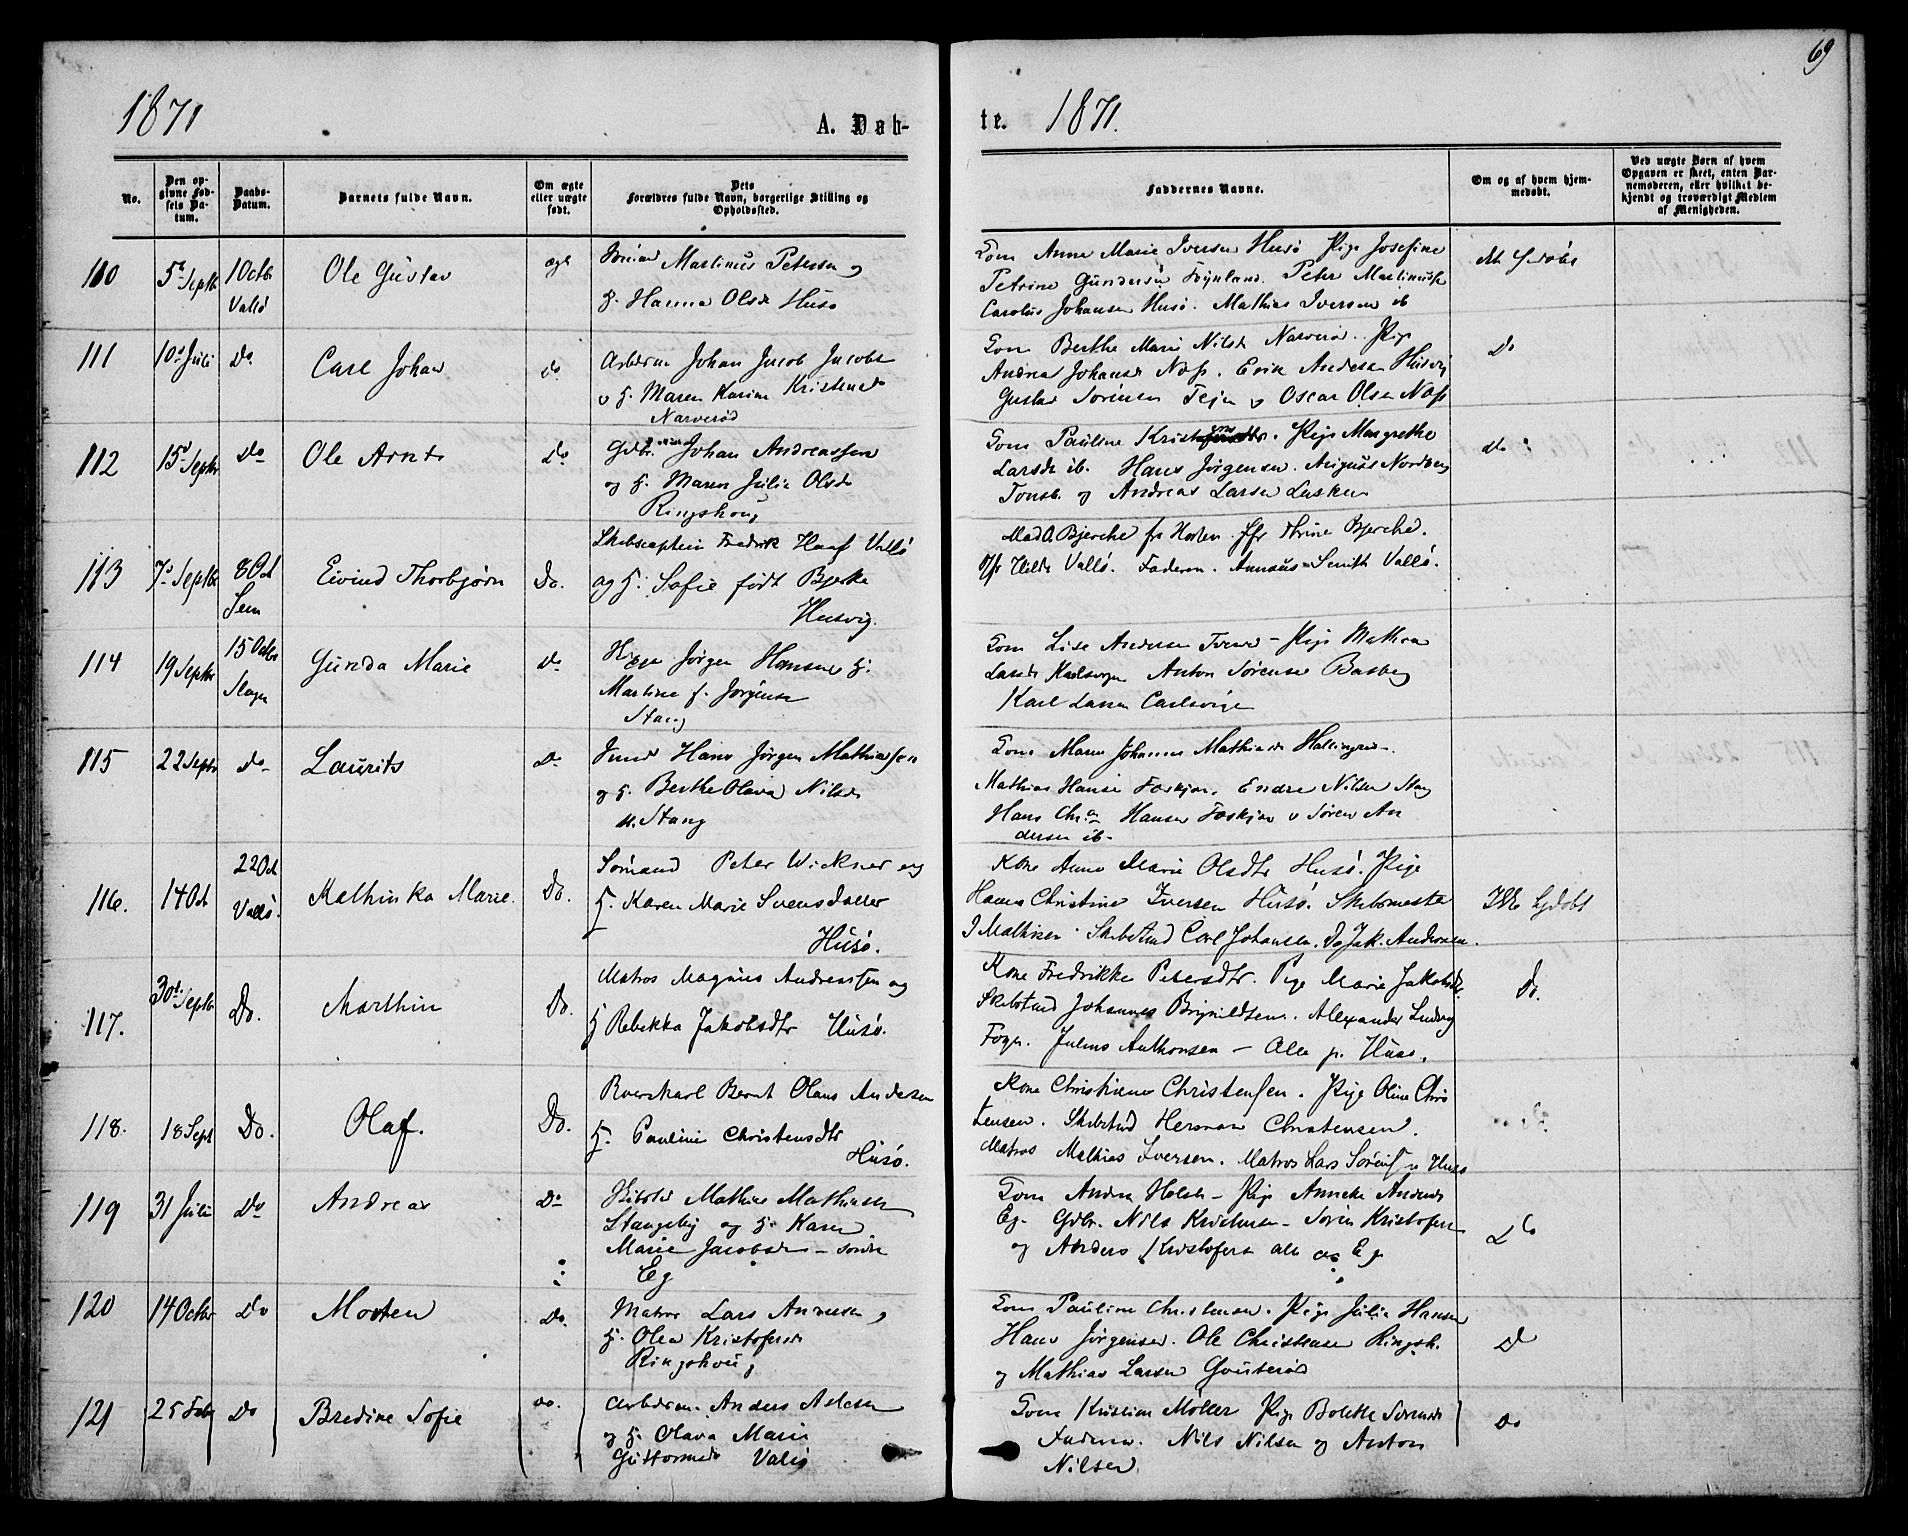 69
1871
A. Døb-
te.
1871.
No.
Den op-
givne Fød-
sels Da-
tum.
Daabs-
Datum.
Barnets fulde Navn.
Om ægte
eller uægte
født.
Dets
Forældres fulde Navn, borgerlige Stilling og
Opholdssted.
Faddernes Navne.
Om og af hvem hjem-
medøbt.
Ved uægte Børn af hvem
Opgaven er skeet, enten Bar-
nemoderen, eller hvilket be-
kjendt og troværdigt Medlem
af Menigheden.
110
5 Septbr
1 Octbr
Vallø
Ole Gustav
ægt
Martinus Petersen og
H. Hanna Olsd Husø
Gom Anne Marie Iversen Husø Pige Josefine
Petrine Gundersen Føynland. Peter Martinius
Carolus Johansen Husø. Mathias Iversen ib
111
10 Juli
Do
Carl Johan
do
Arbdsm Johan Jacob Jacobs
og H. Maren Karine Kristensd
Narverød
Gom Berthe Marie Nilsd Narverød. Pige
Andrea Johansd Næss. Erik Andersen Husvig
Gustav Sørensen Tejen og Oscar Olsen Næss
Do
112
15 Septbr
Do
Ole Arnt
do
Gdbr. Johan Andreassen
og H. Maren Julie Olsd
Ringshoug
Gom Pauline . Pige Margrethe
Larsd ib. Hans Jørgensen. August Nordberg
Tonsb. og Andreas Larsen
do
113
7 Septbr
8 Oct
Sem
Eivind Thorbjørn
Do.
Skibscaptein Fredrik Haaf Vallø
og H. Sofie født Bjerke
Husvig.
Mad O. Bjerche fra Horten. Jfr Thrine Bjerche.
Jfr Hilda Vallø. Faderen. Smith Vallø.
114
19 Septbr
15 Octbr
Slagn
Gunda Marie
do
Jørgen Hansen H.
Martine f. Jørgensen
Stang
Gom Lise Andersen - Pige Mathea
Larsd Karlsvigen Anton Sørensen Basberg
Karl Larsen Carlsvigen
115
22 Septbr
do
Laurits
Do
Hans Jørgen Mathiassen
og H. Berthe Olava Nilsd
Stang
Gom Maren Johanne Mathiasd
Mathias Hansen Foskjær. Endre Nilsen Stang
Hans Chr. Hansen Foskjær og Søren An
dersen ib.
116.
14 Oct
22 Oct
Vallø.
Kathinka Marie.
Do.
Sømand Peter Wickner og
H. Karen Marie Svensdatter
Husø.
Kone Anne Marie Olsdtr Husø. Pige
Hanna Christine Iversen Husø. Skibsmester
J Mathisen. Skibstmd Carl Johansen. Do Jak. Andersen.
Ikke Hjdøbt
117.
30te Septbr
Do.
Marthin
Do.
Matros Magnus Andreassen og
H Rebekka Jakobsdtr Husø.
Kone Fredrikke Petersdtr. Pige Marie Jakobsdtr.
Skibstmd Johannes Brynildsen. Alexander Ludvig
Julius Anthonsen - Alle p. Husø.
Do.
118.
18 Sept
Do.
Olaf.
Do.
Bernt Olaus Andersen
H. Pauline Christensdtr
Husø.
Kone Christiane Christensen. Pige Oline Chris
tensen. Skibstmd Herman Christensen.
Matros Mathias Iversen. Matros Lars Sørens Husø
119
31 Juli
Do
Andreas
Do
Mathias Mathiasen
Stangeby og H. Karen
Marie Jacobsd - søndre
Eg
Gom Andrea Holsk - Pige Anneke Andersd
Eg. Gdbr. Nils Kristensen - Søren Kristofers
og Anders Kristofers alle Eg
do
120
14 Octbr
Do
Morten
Do.
Matros Lars Andersen og
H. Olea Kristofersd
Ringshoug
Gom Pauline Christensen. Pige Julie Hansen
Hans Jørgensen. Ole Christensen Ringsh.
og Mathias Larsen
do
121
25 Feby
Do
Bredine Sofie
do.
Arbdsm. Anders
og H. Olava Marie
Guttormsd Vallø
Gom Kristine Møller Pige Bolette Sørensd
Faderen. Nils Nilsen og Anton
Nilsen
Do